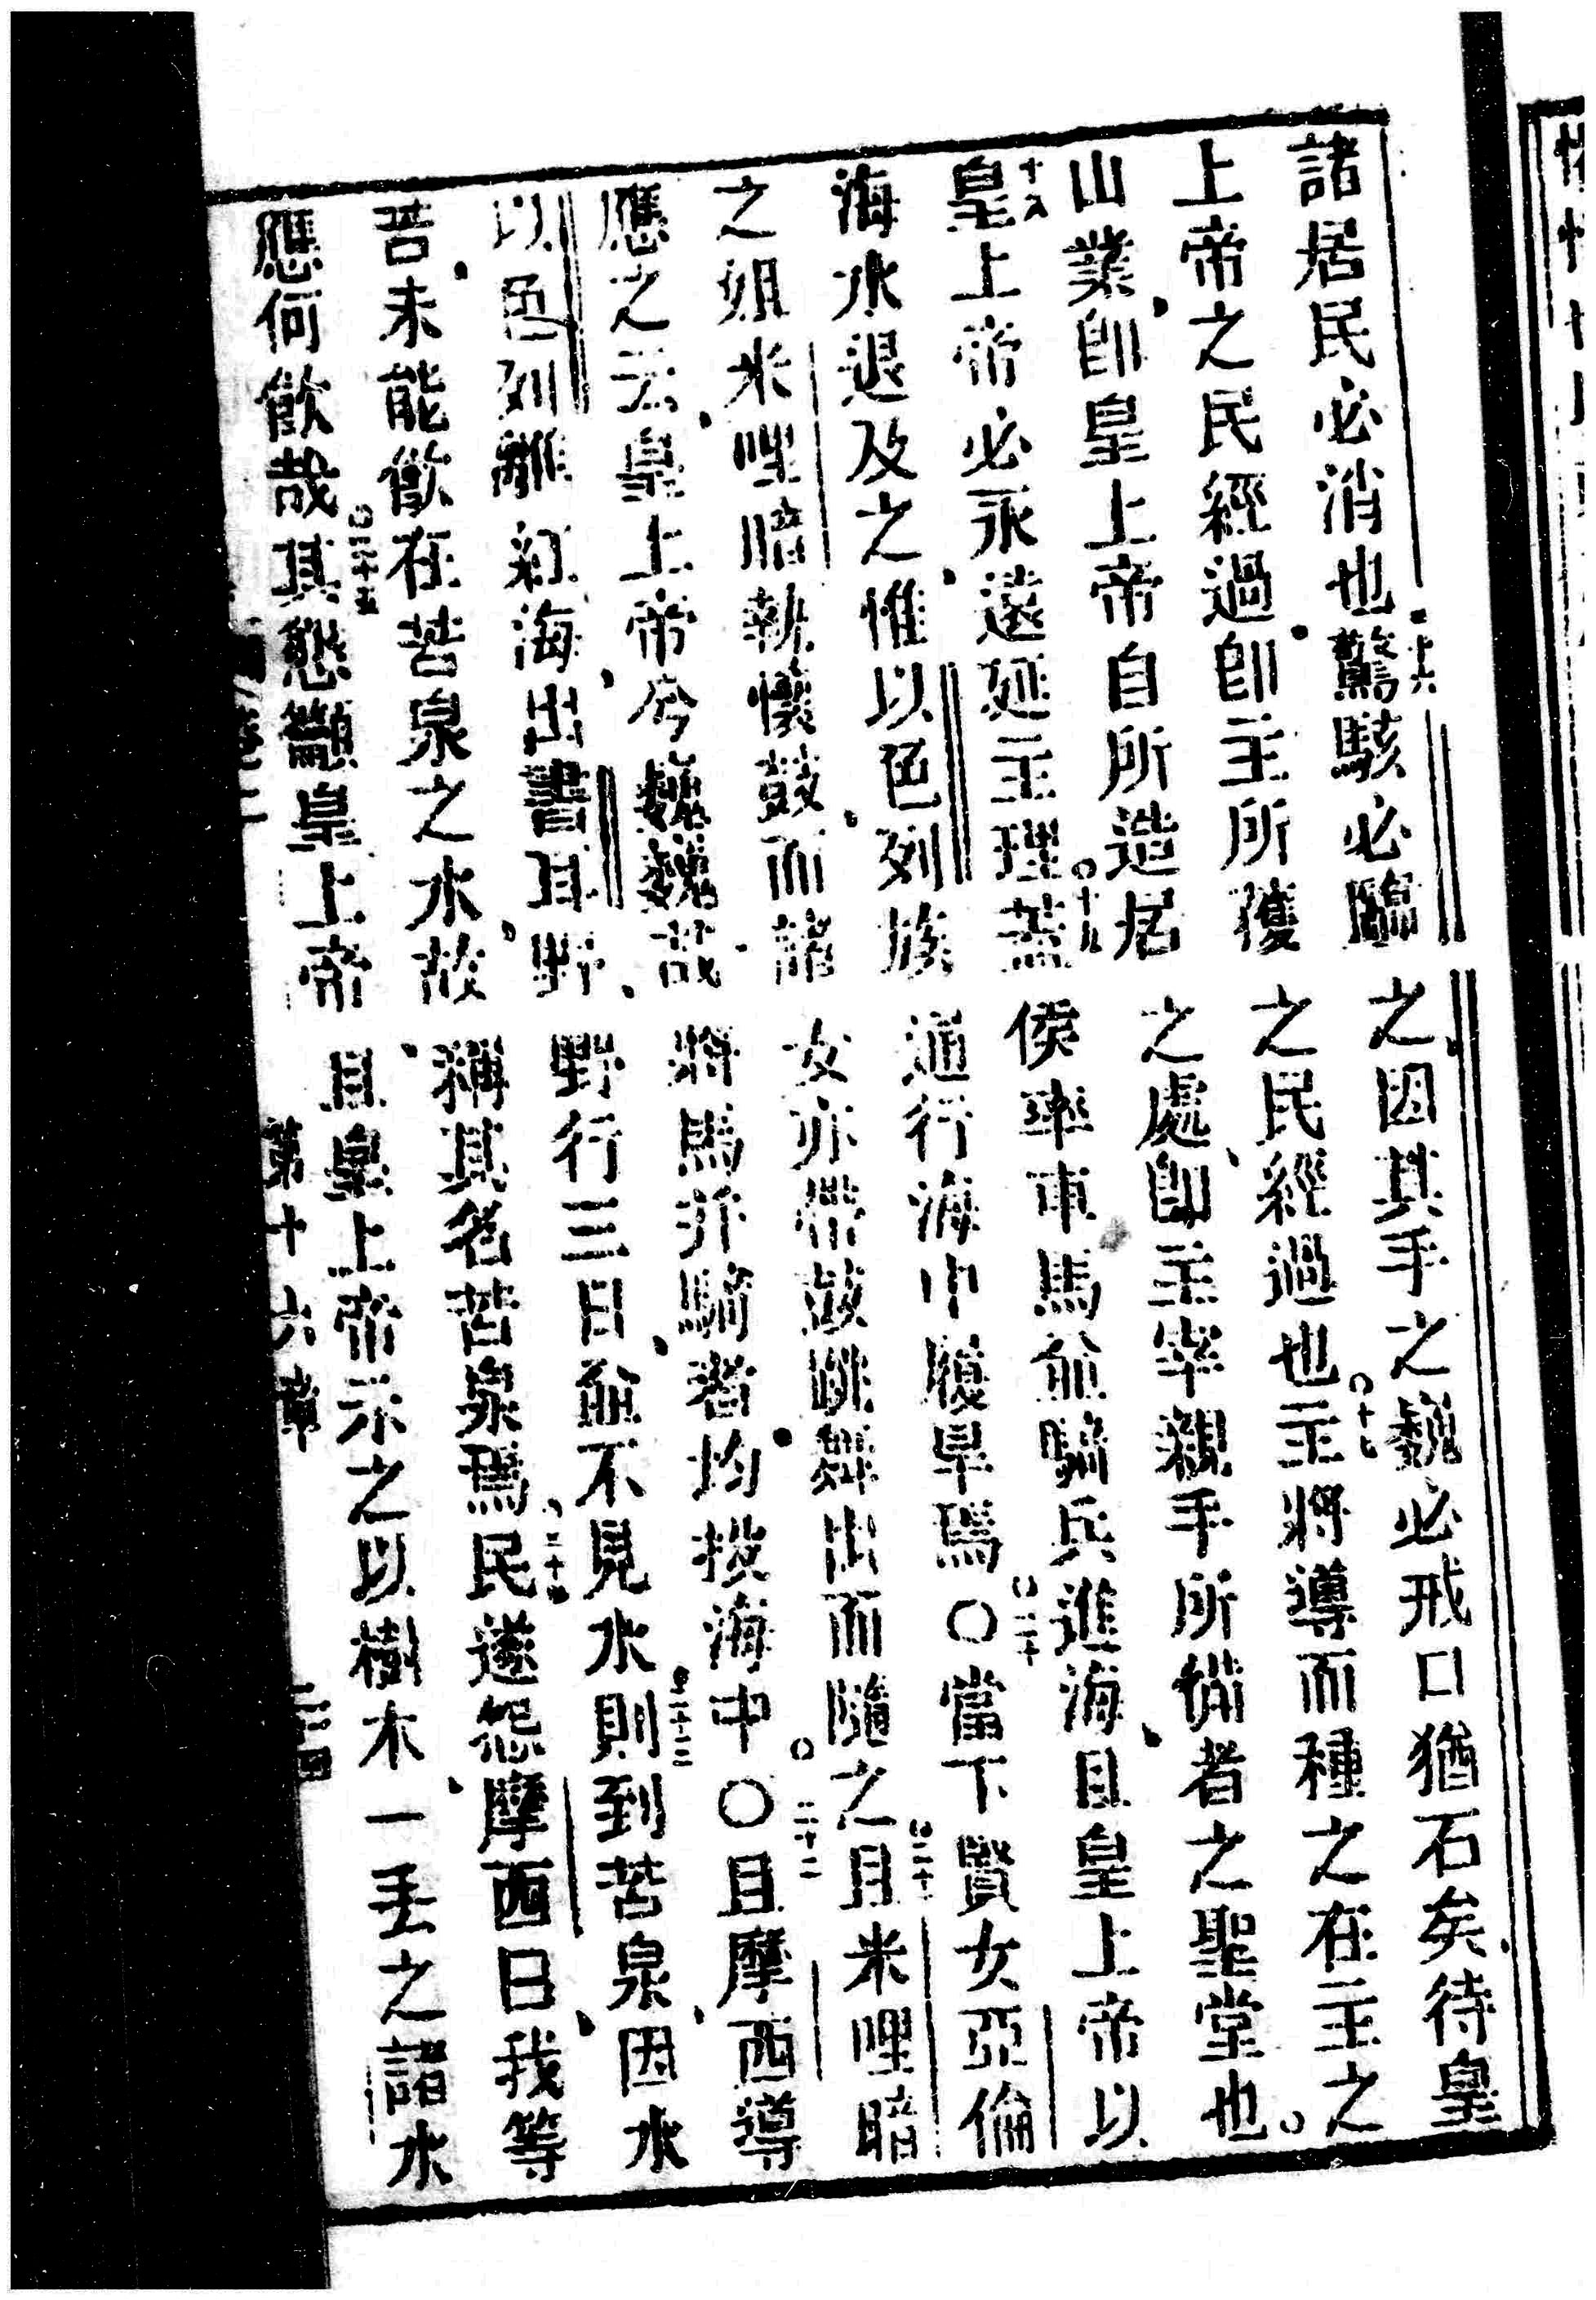 諸居民必消也二十六驚駭必臨之因其手之巍必戒口猶石矣待皇
上帝之民經過卽主所獲之民經過也○十七主將導而種之在主之
山業卽皇上帝自所造居之處卽主宰親手所備者之聖堂也
十八皇上帝必永遠延主理○十九蓋侯率車馬兼騎兵進海且皇上帝以
海水退及之惟以色列族通行海中履旱焉○二十○當下賢女亞倫
之姐米哩暗執懷鼓而諸女亦帶鼓跳舞出而隨之○二十一且米哩暗
應之云皇上帝今巍巍哉將馬并騎者均投海中○二十二○且摩西導
以色列離紅海出書耳野野行三日兼不見水二十三則到苦泉因水
苦未能飲在苦泉之水故稱其名苦泉焉二十四民遂怨摩西曰我等
應何飲哉○二十五其懇籲皇上帝且皇上帝示之以樹木一丟之諸水
第十六章 二十四